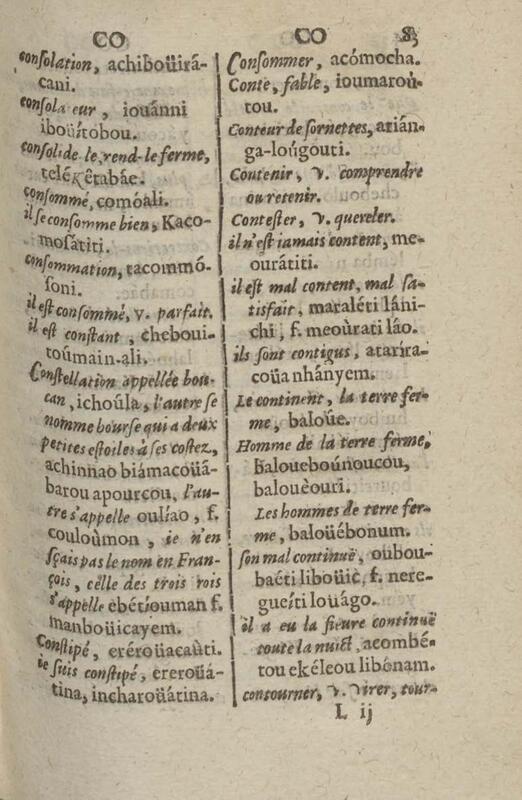 CO
CO
consolation, achiboüirá-
cani.
consola eur, iouánni
iboüítobou.
consolide le, rend-le ferme,
telékêtabáe.
consommé, comóali.
il se consomme bien, Kaco-
mosátiti.
consommation, tacommó-
soni.
il est consommé, v. parfait.
il est constant, cheboui-
toúmain-ali.
Constellation appellée bou-
can, ichoúla, l'autre se
nomme bourse qui a deux
petites estoiles à ses costez,
achinnao biámacoüá-
barou apourcou, l'au-
tre s'appelle oulíao, f.
couloùmon, ie n'en
sçais pas le nom en Fran-
çois, celle des trois rois
s'appelle ebétiouman f.
manboüicayem.
Constipé, eréroüacaùti.
ie suis constipé, creroüá-
tina, incharoüátina.
Consommer, acómocha.
Conte, fable, ioumaroú-
tou.
Conteur de sornettes, atián-
ga-loúgouti.
Contenir, v. comprendre
ou retenir.
Contester, v. quereler.
il n'est iamais content, me-
ourátiti.
il est mal content, mal sa-
tisfait, maraléti láni-
chi, f. meoùrati láo.
ils sont contigus, atarira-
coüa nhányem.
Le continent, la terre fer-
me, baloüe.
Homme de la terre ferme,
baloueboúnoucou,
balouèouri.
Les hommes de terre fer-
me, baloüébonum.
son mal continuë, oubou-
baéti liboüic, f. nere-
gueíti loüágo.
il a eu la fieure continuë
toute la nuict, acombé-
tou ekéleou libónam.
contourner, v. virer, tour-
L ij